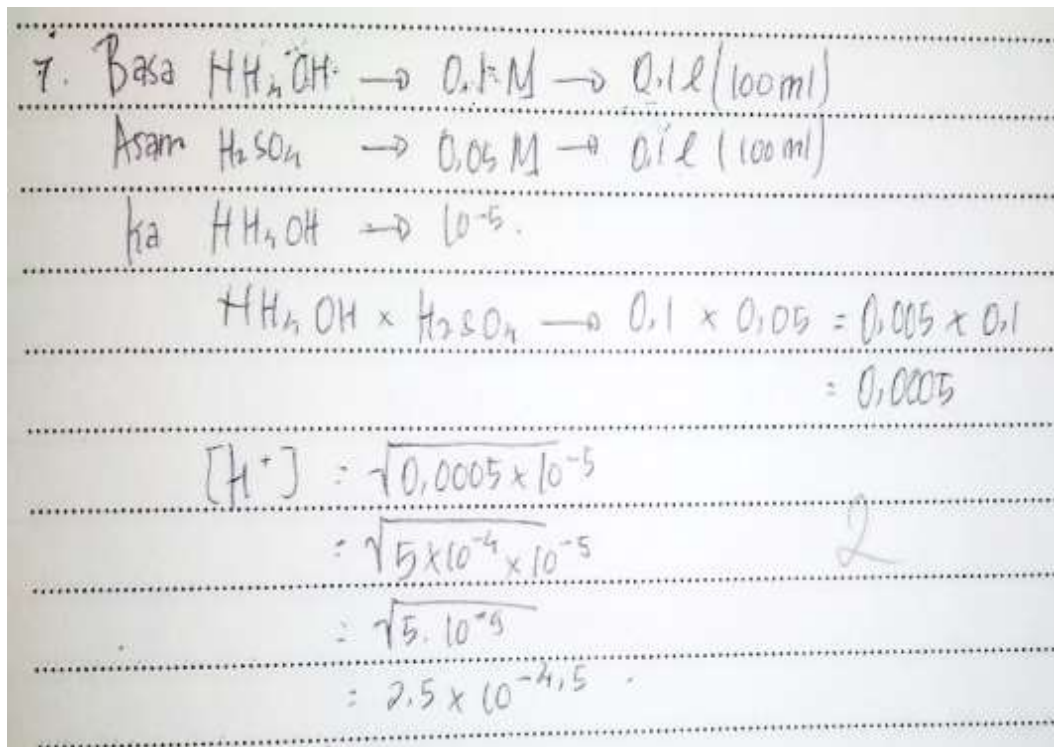 7. Basa HH₄OH → 0.1 M → 0.1 l (100 ml)
Asam H₂SO₄ → 0,05 M → 0,1 l (100 ml)
ka HH₄OH → 10⁻⁵.
HH₄OH × H₂SO₄ → 0,1 × 0,05 = 0,005 × 0,1
= 0,0005
[H⁺] = √0,0005 × 10⁻⁵
= √5×10⁻⁴ × 10⁻⁵
2
= √5. 10⁻⁹
= 2.5 × 10⁻⁴,⁵